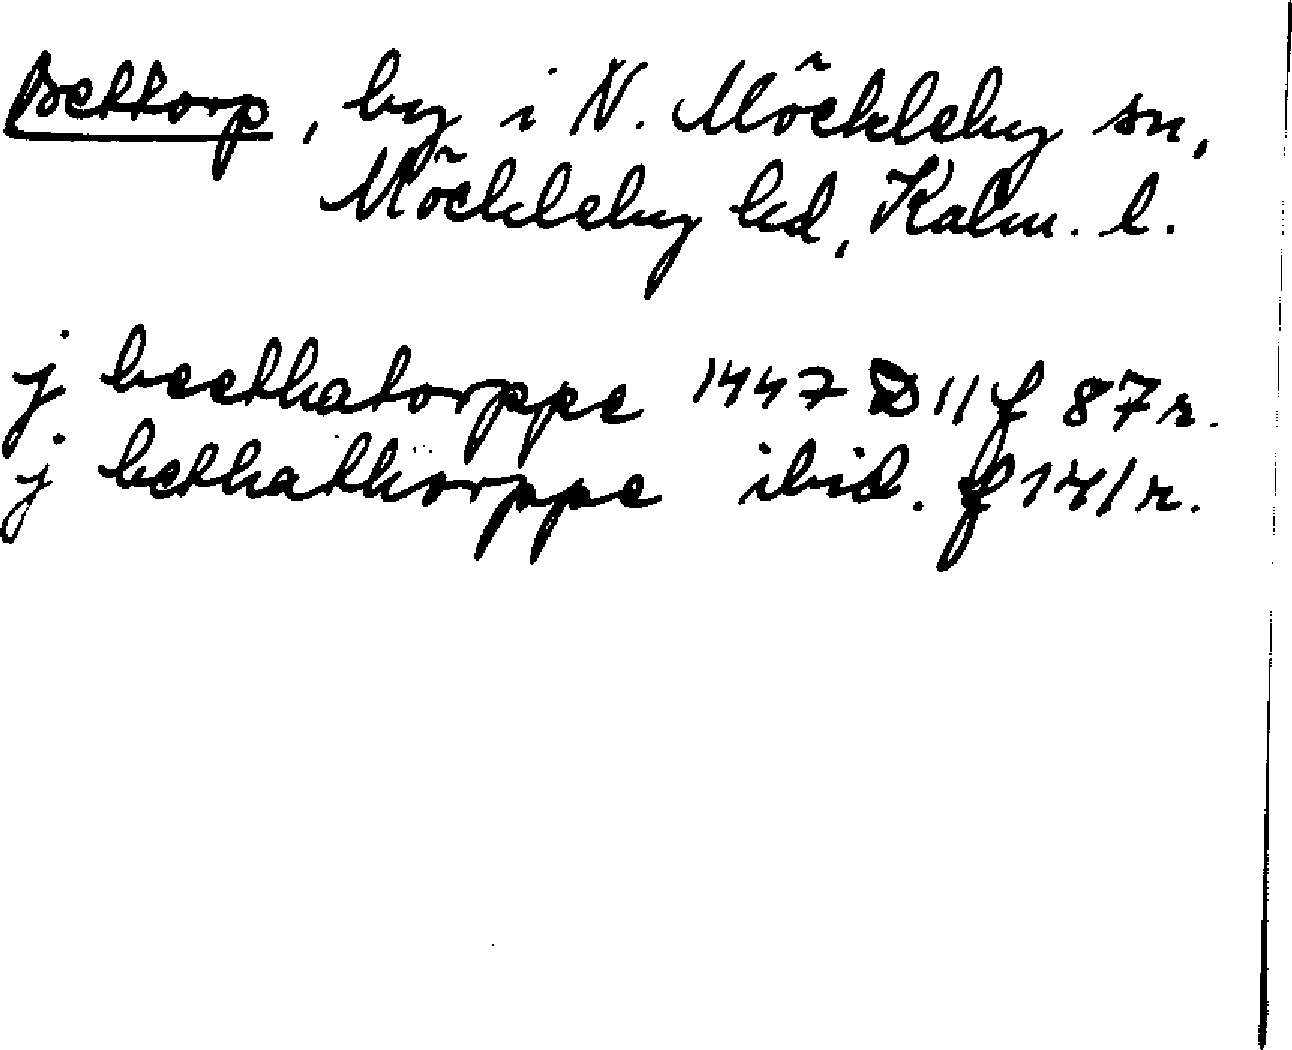 Bettorp, by i N. Möckleby sn,
Möckleby hd, Kalm. l.
j beethatorppe 1447 D 11 f 87 r.
j bethathorppe ibid. f 171 r.